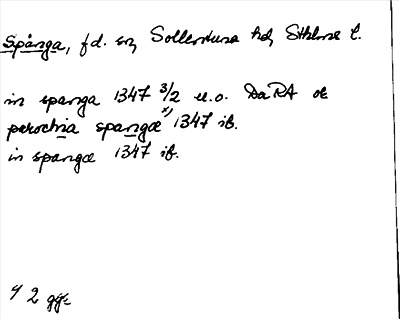 Spånga, fd. sn, Sollentuna hd, Sthlms l.
in spanga 1347 3/2 u.o. DaRA ok
parochia spangæ x) 1347 ib.
in spangæ 1347 ib.
x) 2 ggr